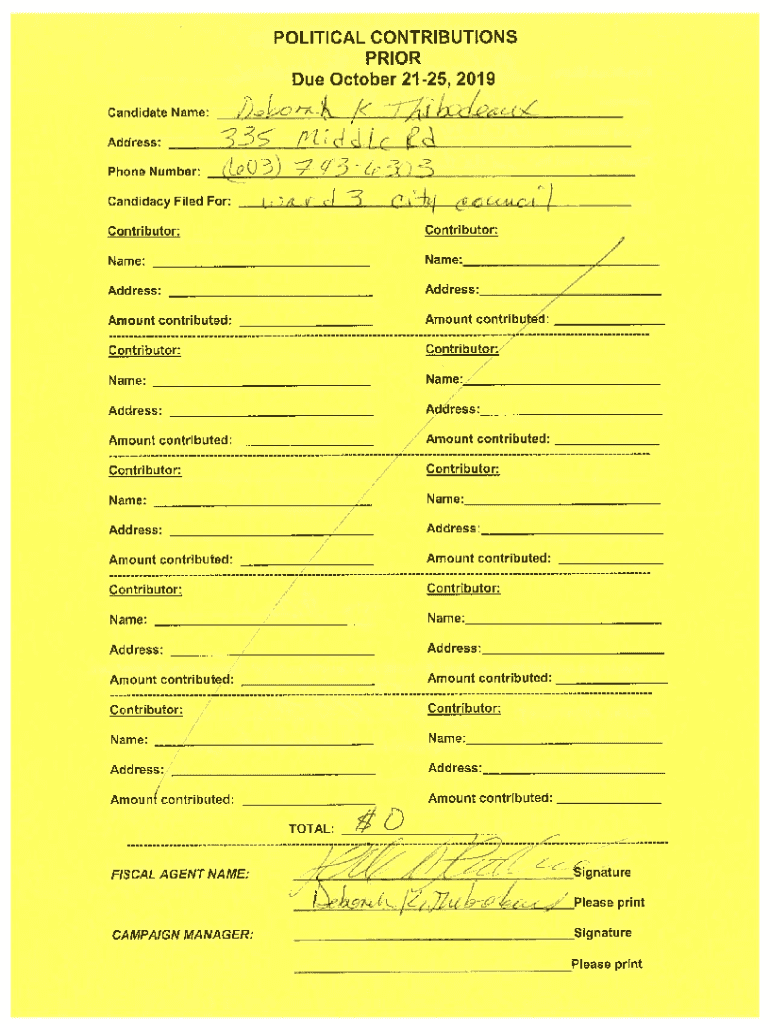 POLITICAL CONTRIBUTIONS
PRIOR
Due October 21-25, 2019
Candidate Name: Deborah K Thibodeaux
Address: 335 Middle Rd
Phone Number: (603) 743-6303
Candidacy Filed For: ward 3 city council
Contributor: Contributor:
Name: Name:
Address: Address:
Amount contributed: Amount contributed:
Contributor: Contributor:
Name: Name:
Address: Address:
Amount contributed: Amount contributed:
Contributor: Contributor:
Name: Name:
Address: Address:
Amount contributed: Amount contributed:
Contributor: Contributor:
Name: Name:
Address: Address:
Amount contributed: Amount contributed:
Contributor: Contributor:
Name: Name:
Address: Address:
Amount contributed: Amount contributed:
TOTAL: $0
FISCAL AGENT NAME: Signature
Deborah K. Thibodeaux Please print
CAMPAIGN MANAGER: Signature
Please print